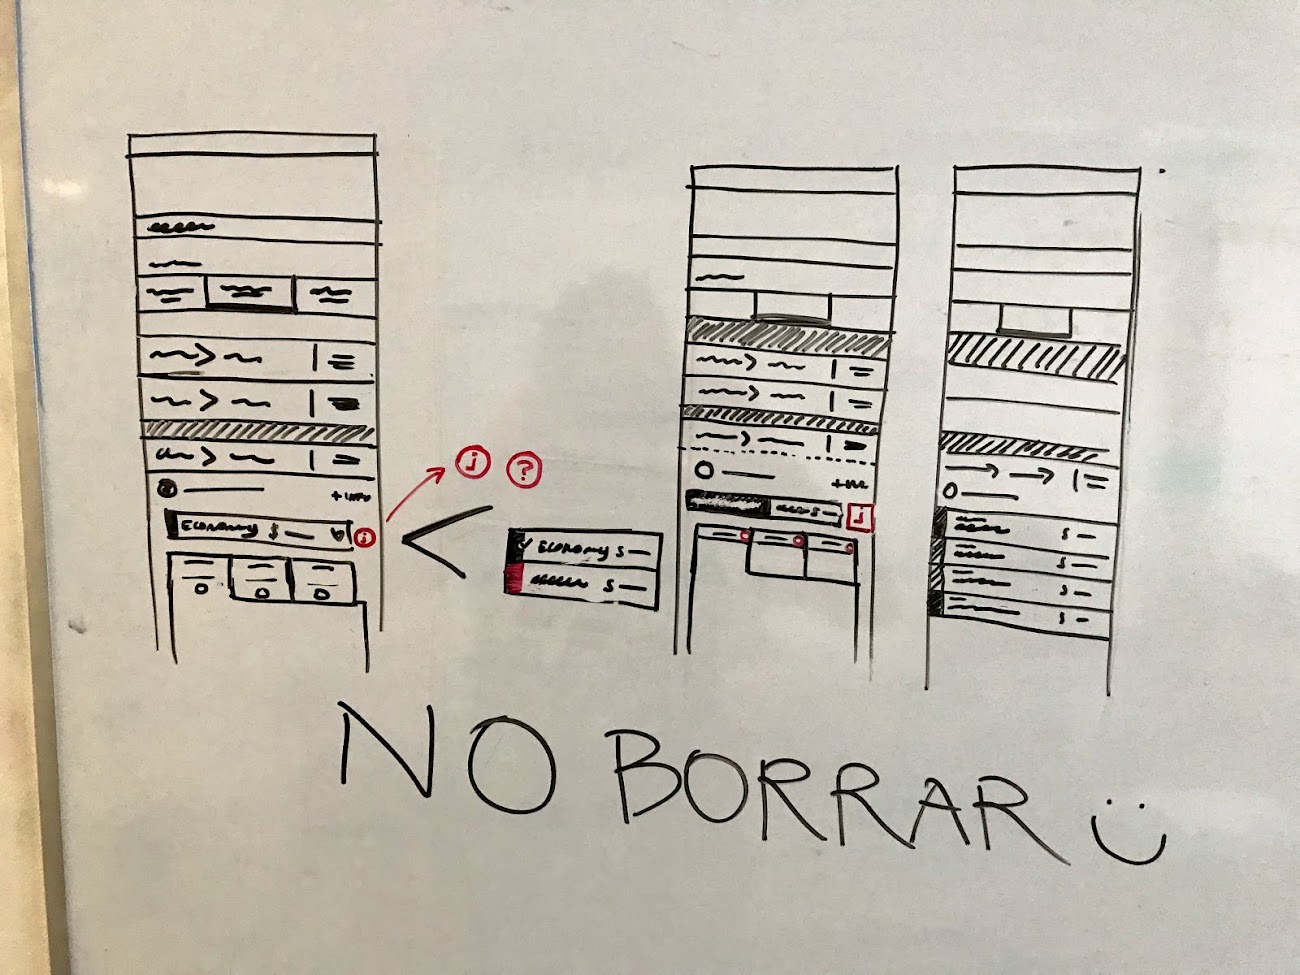 + INFO
ECONOMY $
i
i ?
ECONOMY $
$
$
i
$
$
$
$
NO BORRAR